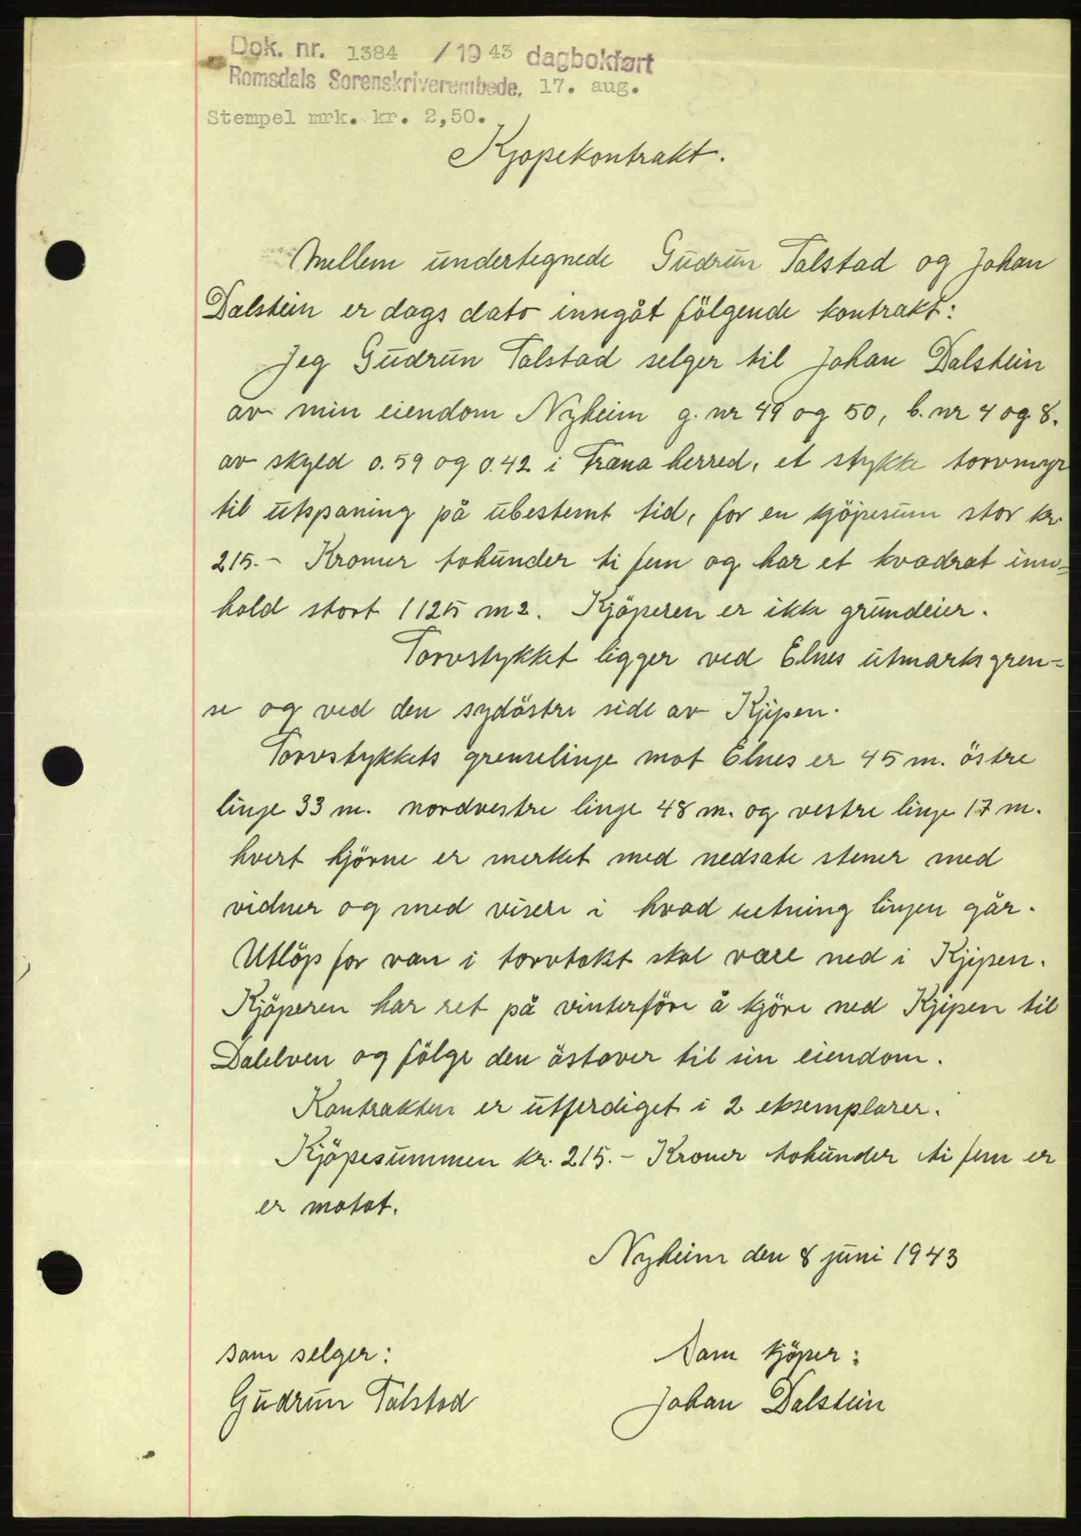 Dok. nr. 1384 / 1943 dagbokført
Romsdals Sorenskriverembede, 17. aug.
Stempel mrk. kr. 2,50.
Kjøpekontrakt.
Mellem undertegnede Gudrun Talstad og Johan
Dalstein er dags dato inngåt följgende kontrakt:
Jeg Gudrun Talstad selger til Johan Dalstein
av min eiendom Nyheim g. nr 49 og 50, b. nr 4 og 8.
av skyld 0.59 og 0.42 i Fræna herred, et stykke torvmyr
til utspaning på ubestemt tid, for en kjöpesum stor kr.
215.- Kroner tohunder ti fem og har et kvadrat inn=
hold stort 1125 m2. Kjöperen er ikke grundeier.
Torvstykket ligger ved Elnes utmarksgren=
se og ved den sydöstre side av Kjipen.
Torvstykkets grenselinje mot Elnes er 45 m. östre
linje 33 m. nordvestre linje 48 m. og vestre linje 17 m.
hvert hjörne er merket med nedsate stener med
vidner og med visere i hvad retning linjen går.
Utlöp for van i torvtakt skal være ned i Kjipen.
Kjöperen har ret på vinterföre å kjöre ned Kjipen til
Dalelven og fölge den östover til sin eiendom.
Kontrakten er utferdiget i 2 eksemplarer.
Kjöpesummen kr. 215.- Kroner tohunder ti fem er
er motat.
Nyheim den 8 juni 1943
Som selger:
Som kjöper:
Gudrun Talstad
Johan Dalstein